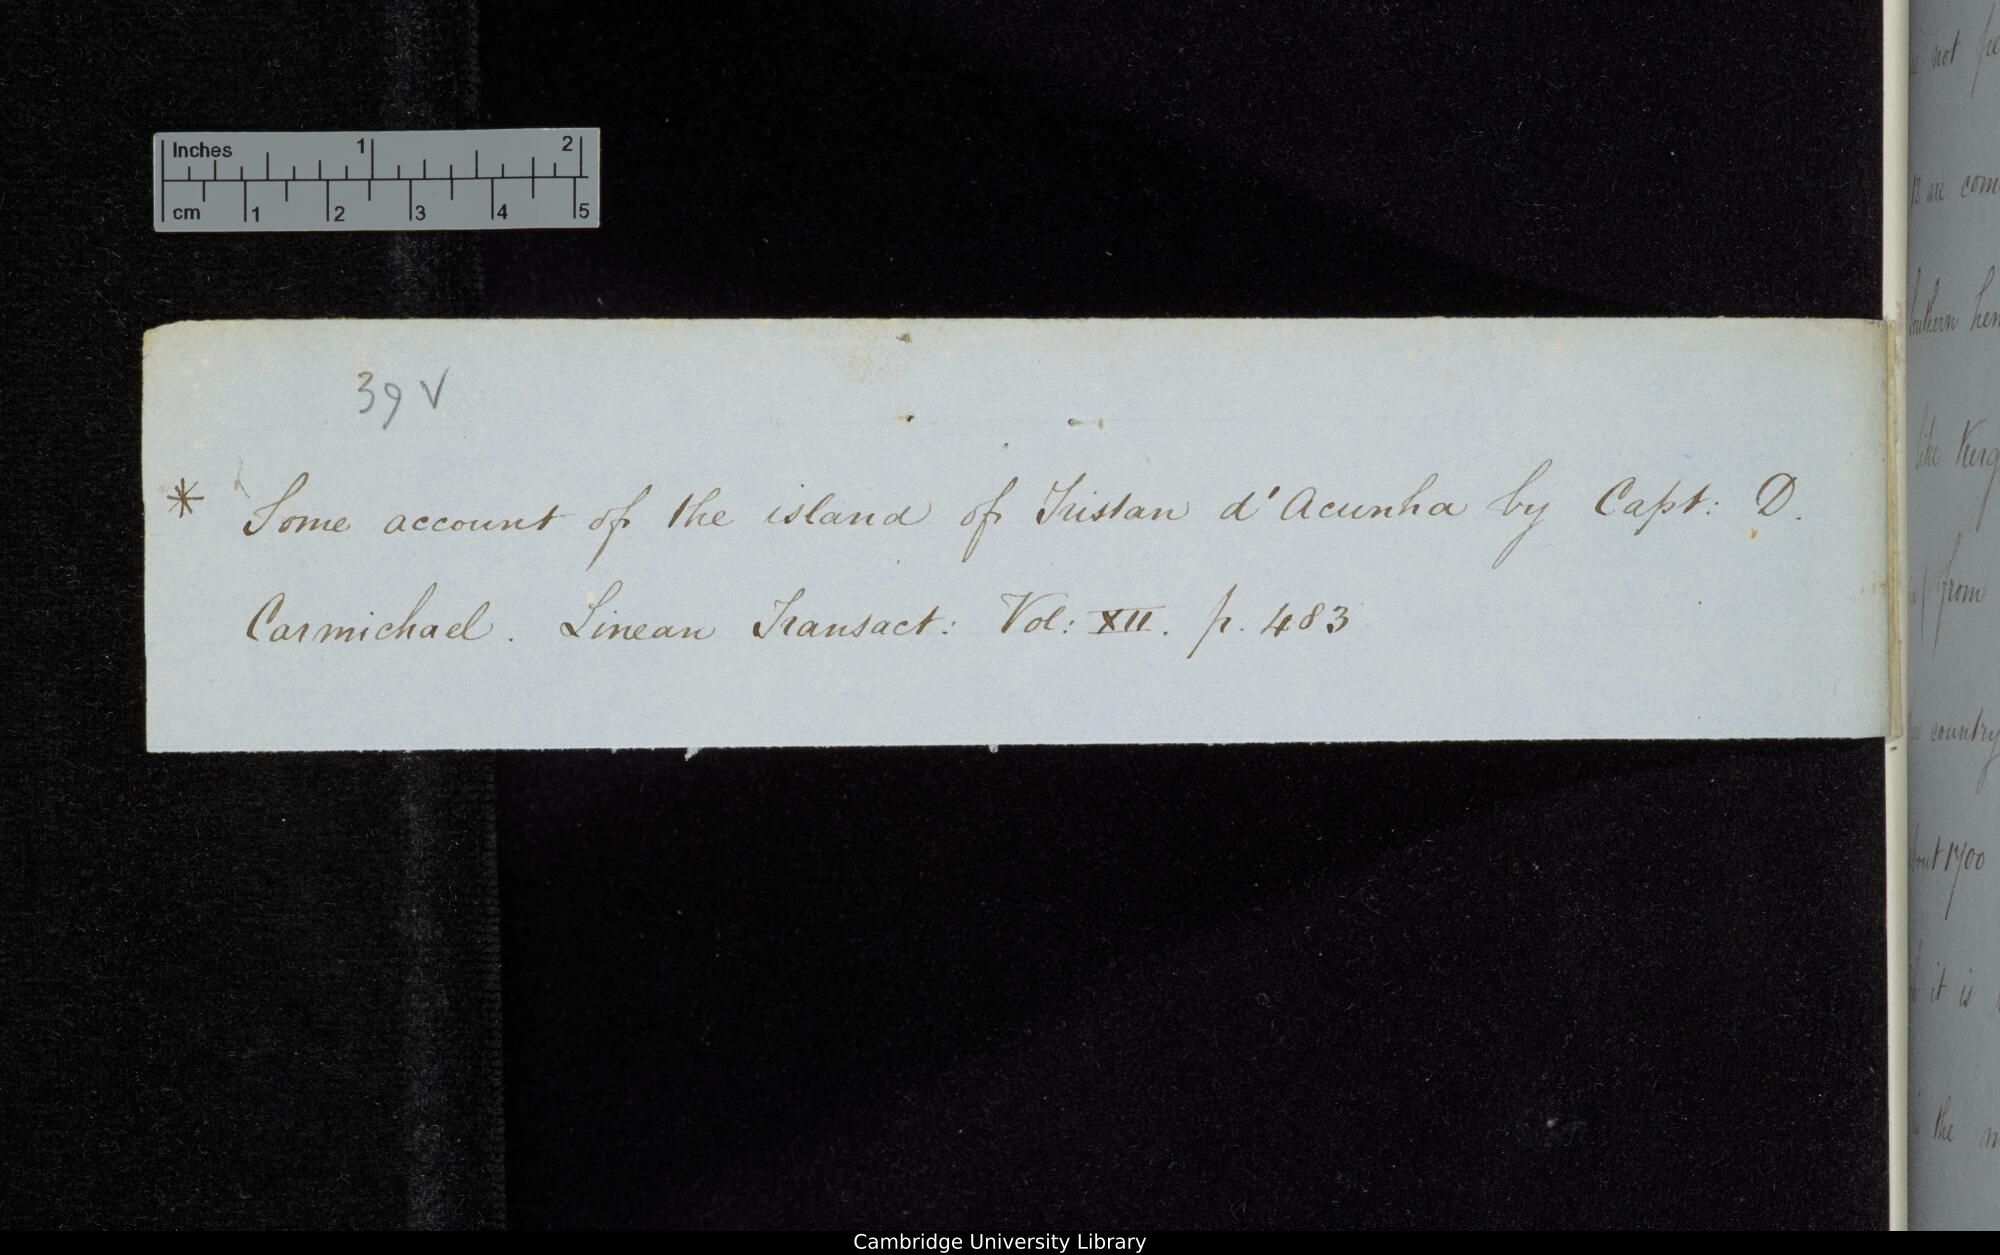 Inches 1 2
cm 1 2 3 4 5
39 V
* Some account of the island of Tristan d'Acunha by Capt: D.
Carmichael. Linean Transact: Vol: XII. p. 483
not
are
from
country
1700
it is
the
Cambridge University Library